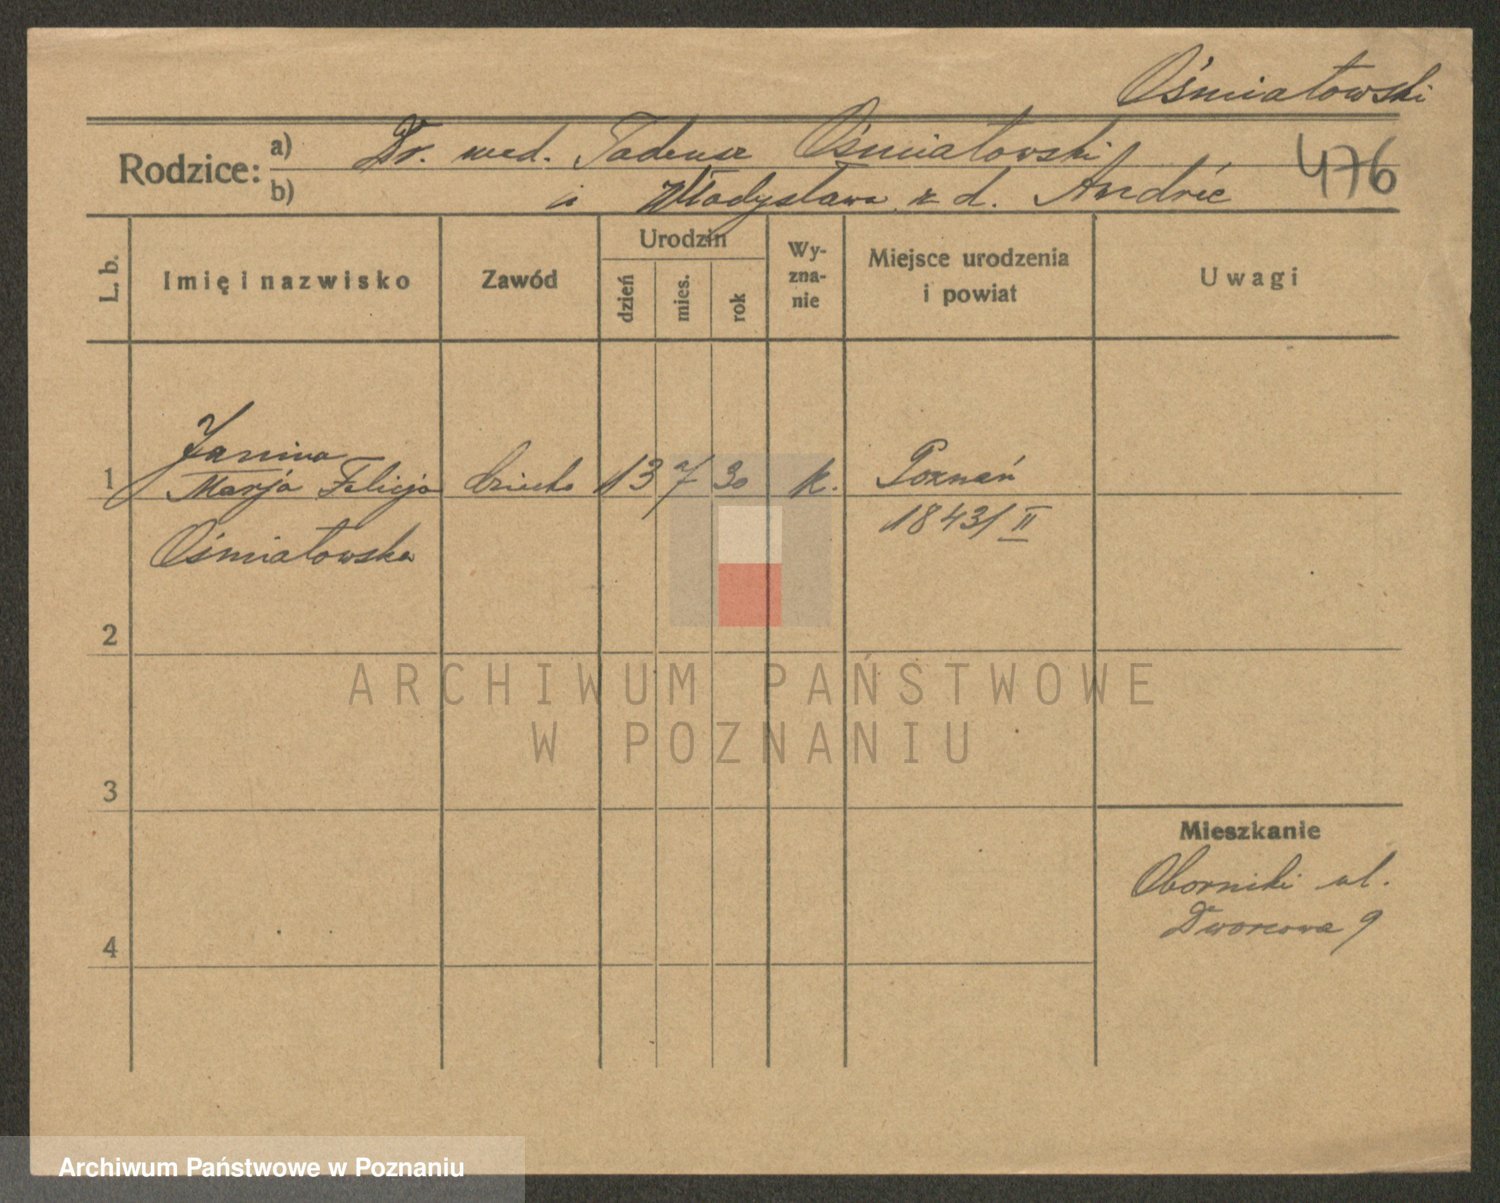 Ośmiałowski
Rodzice:
a) Dr. med. Tadeusz Ośmiałowski
b) i Władysława z d. Andrée
476
L. b.
Imię i nazwisko
Zawód
Urodzin
dzień
mies.
rok
Wy-
zna-
nie
Miejsce urodzenia
i powiat
Uwagi
1
Janina
Marja Felicja
Ośmiałowska
dziecko
13
7
30
k.
Poznań
1843/II
2
3
4
Mieszkanie
Oborniki ul.
Dworcowa 9
ARCHIWUM PAŃSTWOWE
W POZNANIU
Archiwum Państwowe w Poznaniu